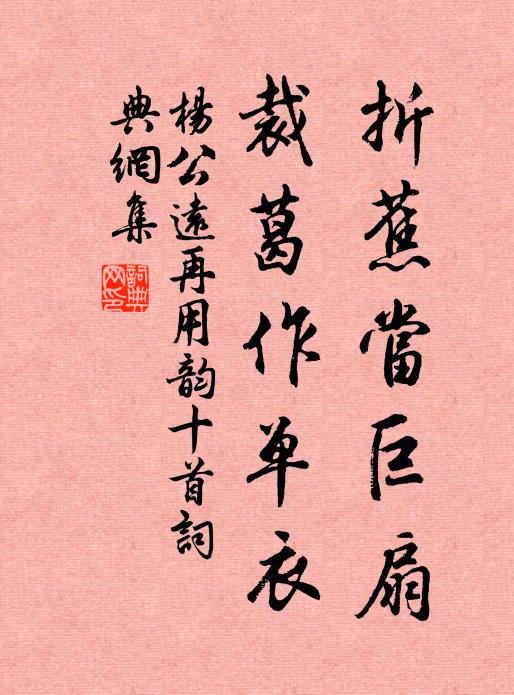 折蕉當巨扇
裁葛作单衣
楊公遠再用韵十首詞
典網集
詞典網印